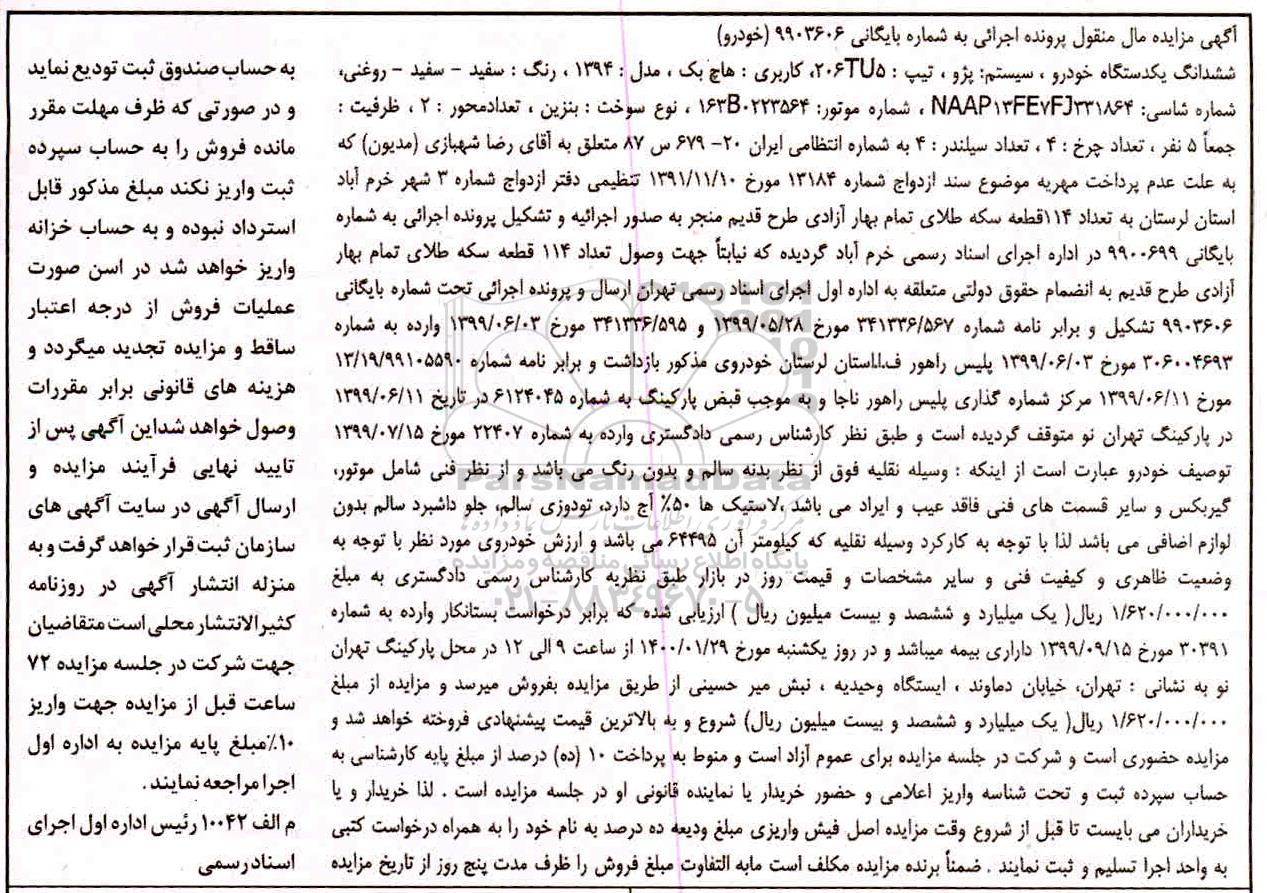 آگهی مزایده مال منقول پرونده اجرائی به شماره بایگانی ۹۹۰۳۶۰۶ (خودرو)
ششدانگ یکدستگاه خودرو ، سیستم: پژو ، تیپ : ۲۰۶TU۵، کاربری : هاچ بک ، مدل : ۱۳۹۴ ، رنگ : سفید - سفید - روغنی،
شماره شاسی: NAAP۱۳FE۷FJ۳۳۱۸۶۴ ، شماره موتور: ۱۶۳B۰۲۲۳۵۶۴ ، نوع سوخت : بنزین ، تعدادمحور : ۲ ، ظرفیت :
جمعاً ۵ نفر ، تعداد چرخ : ۴ ، تعداد سیلندر : ۴ به شماره انتظامی ایران ۲۰- ۶۷۹ س ۸۷ متعلق به آقای رضا شهبازی (مدیون) که
به علت عدم پرداخت مهریه موضوع سند ازدواج شماره ۱۳۱۸۴ مورخ ۱۳۹۱/۱۱/۱۰ تنظیمی دفتر ازدواج شماره ۳ شهر خرم آباد
استان لرستان به تعداد ۱۱۴قطعه سکه طلای تمام بهار آزادی طرح قدیم منجر به صدور اجرائیه و تشکیل پرونده اجرائی به شماره
بایگانی ۹۹۰۰۶۹۹ در اداره اجرای اسناد رسمی خرم آباد گردیده که نیابتاً جهت وصول تعداد ۱۱۴ قطعه سکه طلای تمام بهار
آزادی طرح قدیم به انضمام حقوق دولتی متعلقه به اداره اول اجرای اسناد رسمی تهران ارسال و پرونده اجرائی تحت شماره بایگانی
۹۹۰۳۶۰۶ تشکیل و برابر نامه شماره ۳۴۱۳۳۶/۵۶۷ مورخ ۱۳۹۹/۰۵/۲۸ و ۳۴۱۳۳۶/۵۹۵ مورخ ۱۳۹۹/۰۶/۰۳ وارده به شماره
۳۰۶۰۰۴۶۹۳ مورخ ۱۳۹۹/۰۶/۰۳ پلیس راهور ف.ا.استان لرستان خودروی مذکور بازداشت و برابر نامه شماره ۱۳/۱۹/۹۹۱۰۵۵۹۰
مورخ ۱۳۹۹/۰۶/۱۱ مرکز شماره گذاری پلیس راهور ناجا و به موجب قبض پارکینگ به شماره ۶۱۲۴۰۴۵ در تاریخ ۱۳۹۹/۰۶/۱۱
در پارکینگ تهران نو متوقف گردیده است و طبق نظر کارشناس رسمی دادگستری وارده به شماره ۲۲۴۰۷ مورخ ۱۳۹۹/۰۷/۱۵
توصیف خودرو عبارت است از اینکه : وسیله نقلیه فوق از نظر بدنه سالم و بدون رنگ می باشد و از نظر فنی شامل موتور،
گیربکس و سایر قسمت های فنی فاقد عیب و ایراد می باشد ،لاستیک ها ۵۰٪ آج دارد، تودوزی سالم، جلو داشبرد سالم بدون
لوازم اضافی می باشد لذا با توجه به کارکرد وسیله نقلیه که کیلومتر آن ۶۴۴۹۵ می باشد و ارزش خودروی مورد نظر با توجه به
وضعیت ظاهری و کیفیت فنی و سایر مشخصات و قیمت روز در بازار طبق نظریه کارشناس رسمی دادگستری به مبلغ
۱/۶۲۰/۰۰۰/۰۰۰ ریال( یک میلیارد و ششصد و بیست میلیون ریال ) ارزیابی شده که برابر درخواست بستانکار وارده به شماره
۳۰۳۹۱ مورخ ۱۳۹۹/۰۹/۱۵ داراری بیمه میباشد و در روز یکشنبه مورخ ۱۴۰۰/۰۱/۲۹ از ساعت ۹ الی ۱۲ در محل پارکینگ تهران
نو به نشانی : تهران، خیابان دماوند ، ایستگاه وحیدیه ، نبش میر حسینی از طریق مزایده بفروش میرسد و مزایده از مبلغ
۱/۶۲۰/۰۰۰/۰۰۰ ریال( یک میلیارد و ششصد و بیست میلیون ریال) شروع و به بالاترین قیمت پیشنهادی فروخته خواهد شد و
مزایده حضوری است و شرکت در جلسه مزایده برای عموم آزاد است و منوط به پرداخت ۱۰ (ده) درصد از مبلغ پایه کارشناسی به
حساب سپرده ثبت و تحت شناسه واریز اعلامی و حضور خریدار یا نماینده قانونی او در جلسه مزایده است . لذا خریدار و یا
خریداران می بایست تا قبل از شروع وقت مزایده اصل فیش واریزی مبلغ ودیعه ده درصد به نام خود را به همراه درخواست کتبی
به واحد اجرا تسلیم و ثبت نمایند . ضمناً برنده مزایده مکلف است مابه التفاوت مبلغ فروش را ظرف مدت پنج روز از تاریخ مزایده
به حساب صندوق ثبت تودیع نماید
و در صورتی که ظرف مهلت مقرر
مانده فروش را به حساب سپرده
ثبت واریز نکند مبلغ مذکور قابل
استرداد نبوده و به حساب خزانه
واریز خواهد شد در اسن صورت
عملیات فروش از درجه اعتبار
ساقط و مزایده تجدید میگردد و
هزینه های قانونی برابر مقررات
وصول خواهد شداین آگهی پس از
تایید نهایی فرآیند مزایده و
ارسال آگهی در سایت آگهی های
سازمان ثبت قرار خواهد گرفت و به
منزله انتشار آگهی در روزنامه
کثیرالانتشار محلی است متقاضیان
جهت شرکت در جلسه مزایده ۷۲
ساعت قبل از مزایده جهت واریز
۱۰٪مبلغ پایه مزایده به اداره اول
اجرا مراجعه نمایند .
م الف ۱۰۰۴۲ رئیس اداره اول اجرای
اسناد رسمی
ParsNamadData
پایگاه اطلاع رسانی مناقصه و مزایده
۰۲۱-۸۸۳۴۹۶۷۰-۵